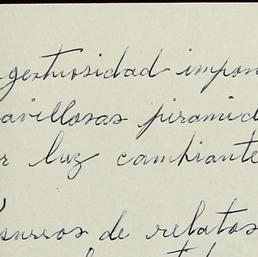 gestuosidad impon
avillosas piramid
r luz cambiante
surros de relatos